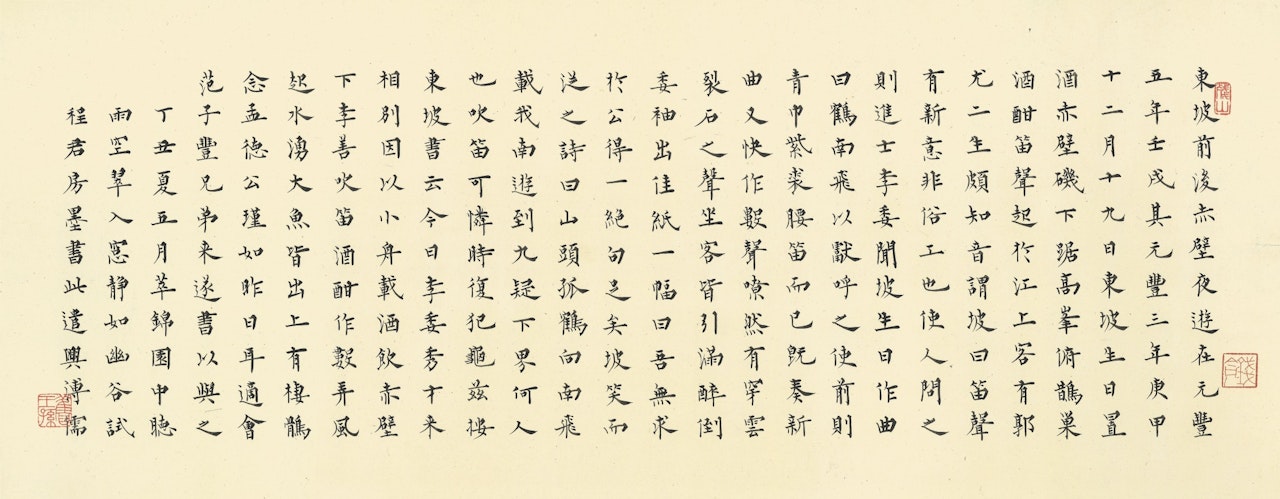 東坡前後赤壁夜遊在元豐
五年壬戌其元豐三年庚申
十二月十九日東坡生日置
酒赤壁磯下踞高峯俯鵲巢
酒酣笛聲起於江上客有郭
尤二生頗知音謂坡曰笛聲
有新意非俗工也使人問之
則進士李委聞坡生日作曲
曰鶴南飛以獻呼之使前則
青巾紫裘腰笛而已既奏新
曲又快作數聲嘹然有穿雲
裂石之聲坐客皆引滿醉倒
委袖出佳紙一幅曰吾無求
於公得一絕句足矣坡笑而
從之詩曰山頭孤鶴向南飛
載我南遊到九疑下界何人
也吹笛可憐時復犯龜茲按
東坡書云今日李委秀才來
相別因以小舟載酒飲赤壁
下李善吹笛酒酣作數弄風
起水湧大魚皆出上有棲鶻
念孟德公瑾如昨日耳適會
范子豐兄弟来遂書以與之
丁丑夏五月萃錦園中聴
雨空翠入窓静如幽谷試
程君房墨書此遣興溥儒